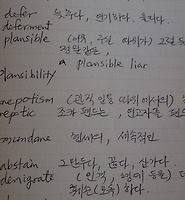 defer 늦추다, 연기하다. 미루다.
deferment
plansible (이유, 구실 따위가) 그럴
a plansible liar
plansibility
nepotism (관직 임용 따위에서의)
nepotic
mundane 현세의, 세속적인
abstain 그만두다, 끊다, 삼가다.
denigrate (인격, 명예 등을)
훼손(모욕)하다.